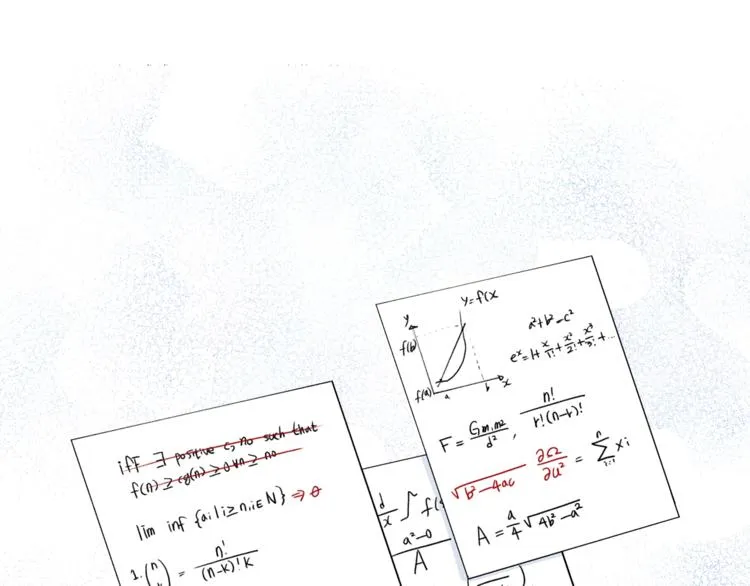 iff ∃ positive c, n₀ such that
f(n) ≥ cg(n) ≥ 0 ∀n ≥ n₀
lim inf {aᵢ | i ≥ n, i ∈ N} ⇒ θ
1. (n k) = n! / (n-k)! k
d/x ∫ f(
a²-0
A
y
y=f(x
f(b)
f(a)
a
b
x
a²+b²-c²
eˣ=1+x/1!+x²/2!+x³/3!+...
F = Gm₁m₂/d² , n!/r!(n-r)!
√b²-4ac ∂Ω/∂u² = ∑ⁿᵢ₌₁ xᵢ
A = a/4 √4b²-a²